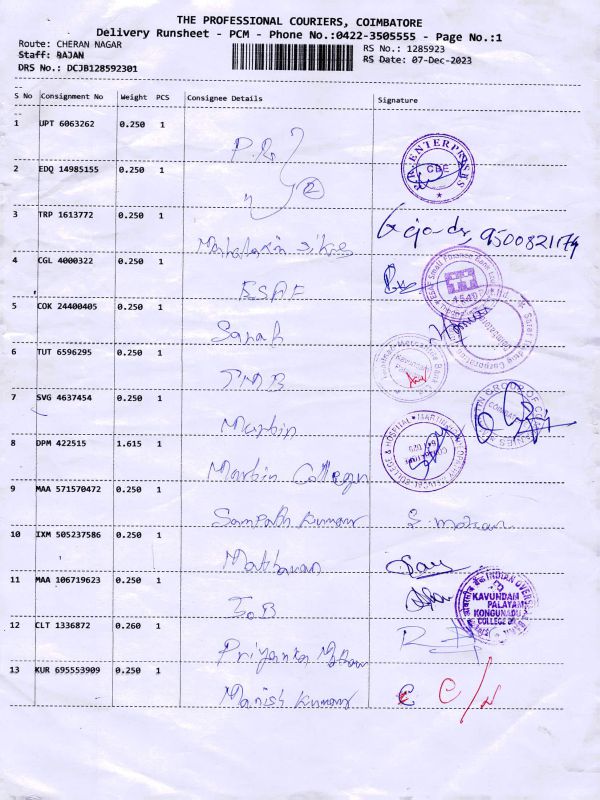 THE PROFESSIONAL COURIERS, COIMBATORE
Delivery Runsheet - PCM - Phone No.:0422-3505555 - Page No.:1
Route: CHERAN NAGAR RS No.: 1285923
Staff: RAJAN RS Date: 07-Dec-2023
DRS No.: DCJB128592301
S No Consignment No Weight PCS Consignee Details Signature
1 UPT 6063262 0.250 1
ENTERPRISES
CBE
2 EDQ 14985155 0.250 1
2
3 TRP 1613772 0.250 1
9500821179
4 CGL 4000322 0.250 1
ESAF
Small Finance Bank
5 COK 24400405 0.250 1
Sarah
6 TUT 6596295 0.250 1
TMB
7 SVG 4637454 0.250 1
Martin
COLLEGE & HOSPITAL
8 DPM 422515 1.615 1
Martin College
9 MAA 571570472 0.250 1
Sampath Kumar S. Mohan
10 IXM 505237586 0.250 1
11 MAA 106719623 0.250 1
IOB
INDIAN OVERSEAS
KAVUNDAM
PALAYAM
KONGUNADU
COLLEGE
12 CLT 1336872 0.260 1
Priyanka
13 KUR 695553909 0.250 1
Manish Kumar
C/N